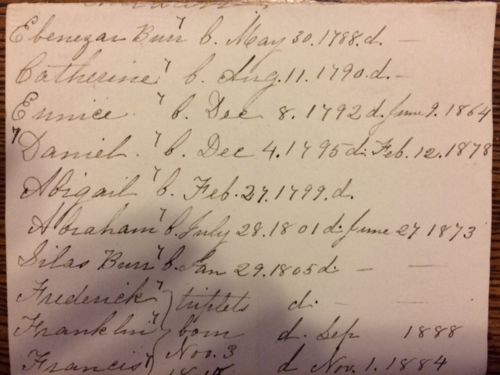 Ebenezar Burr b. May 30. 1788. d. —
Catherine " b. Aug. 11. 1790. d. —
Eunice " b. Dec 8. 1792 d. June 9. 1864
" Daniel " b. Dec 4. 1795 d. Feb. 12. 1878
Abigail " b. Feb. 27. 1799. d.
Abraham " b. July 28. 1801 d. June 27 1873
Silas Burr " b. Jan 29. 1805 d. — —
Frederick " triplets d. — —
Franklin " born d. Sep 1888
Francis " Nov. 3 d Nov. 1. 1884